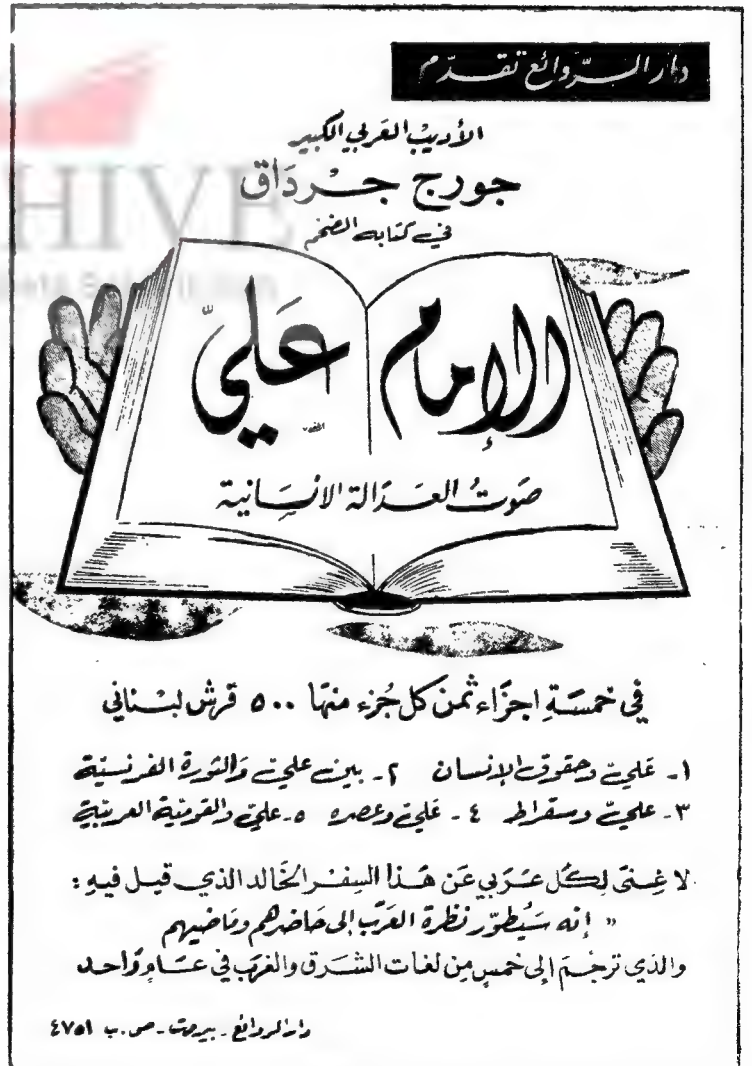 دار الروائع تقدّم
الأديب العربي الكبير
جورج جرداق
في كتابه الضخم
الإمام عليّ
صَوتُ العَدَالة الانسَانية
في خمسَةِ اجزَاء ثمن كل جُزء منهَا ٥٠٠ قرش لبناني
١- عَليّ وحقوق الإنسان ٢- بين عليّ وَالثورة الفرنسيّة
٣- عليّ وسقراط ٤- عَليّ وعصره ٥- عليّ والقوميّة العربيّة
لا غِنىً لِكُل عَرَبي عَن هَذا السِفر الخَالد الذي قيل فيهِ :
" إنه سَيُطوّر نظرة العَرَب إلى حَاضرهم ومَاضيهم
والذي ترجمَ إلى خمسٍ مِن لغات الشرق والغَرب في عَام وَاحد
دار الروائع - بيروت - ص.ب ٤٧٥١
HIVE